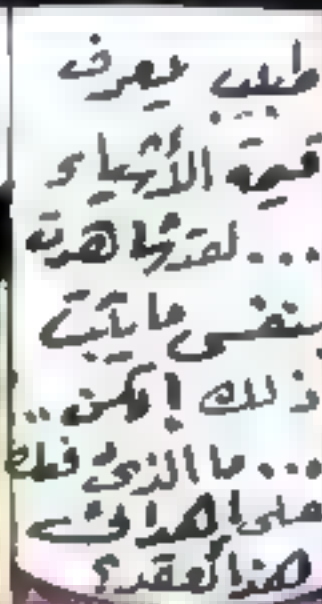 طبيب يعرف
قيمة الأشياء
... لقد شاهدت
بنفسى ما يثبت
ذلك ! لكن ..
... ما الذى
على إهدائى
هذا العقد ؟